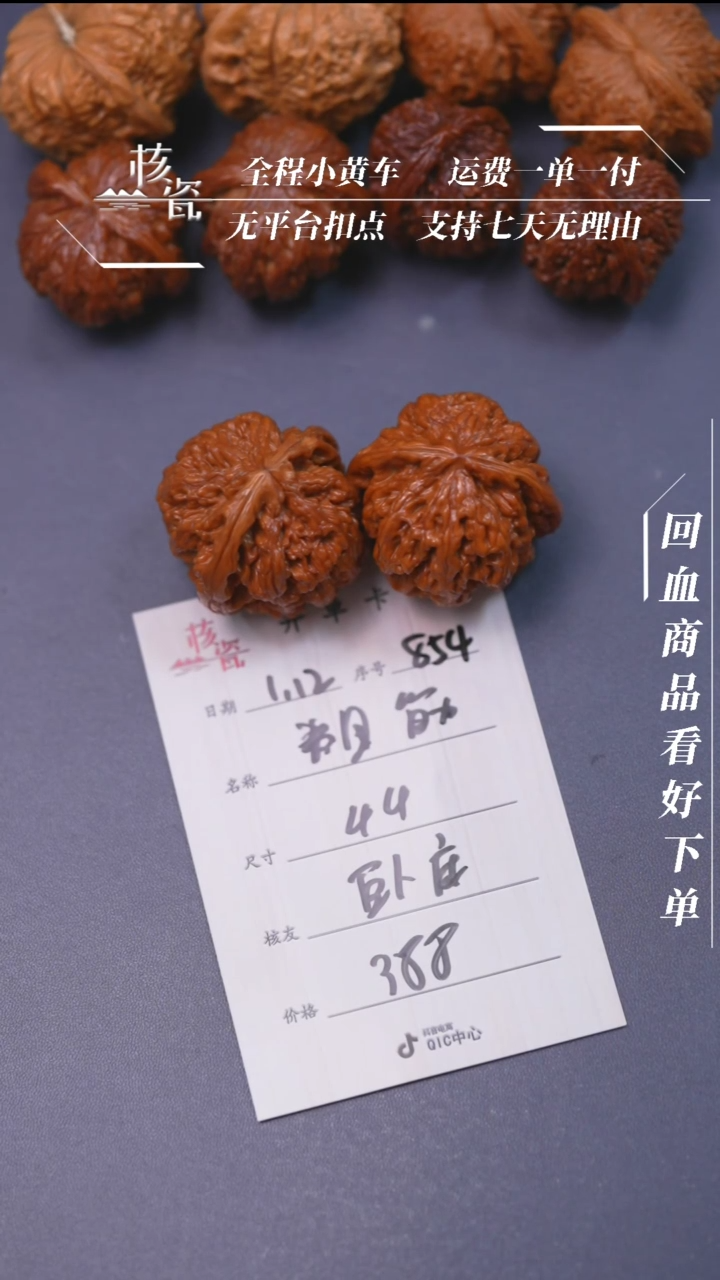 核瓷
全程小黄车 运费一单一付
无平台扣点 支持七天无理由
回血商品看好下单
核瓷
开单卡
日期 1.12 序号 854
名称
尺寸 44
核友 卧底
价格 388
抖音电商
QIC中心